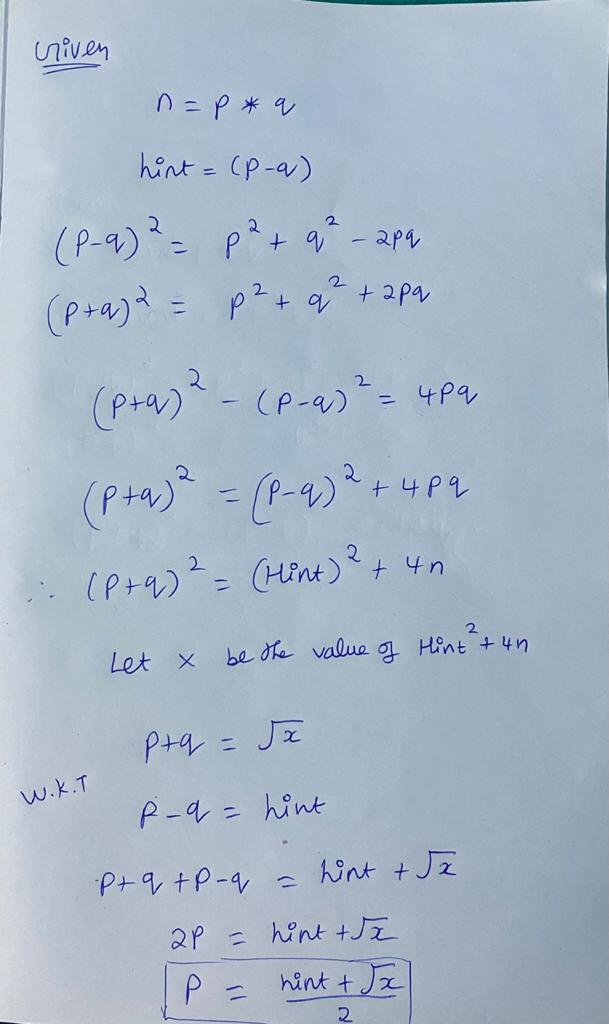 Given
n = p * q
hint = (p-q)
(p-q)² = p² + q² - 2pq
(p+q)² = p² + q² + 2pq
(p+q)² - (p-q)² = 4pq
(p+q)² = (p-q)² + 4pq
∴ (p+q)² = (Hint)² + 4n
Let x be the value of Hint² + 4n
p+q = √x
W.K.T
p-q = hint
p+q+p-q = hint + √x
2p = hint + √x
p = hint + √x
2